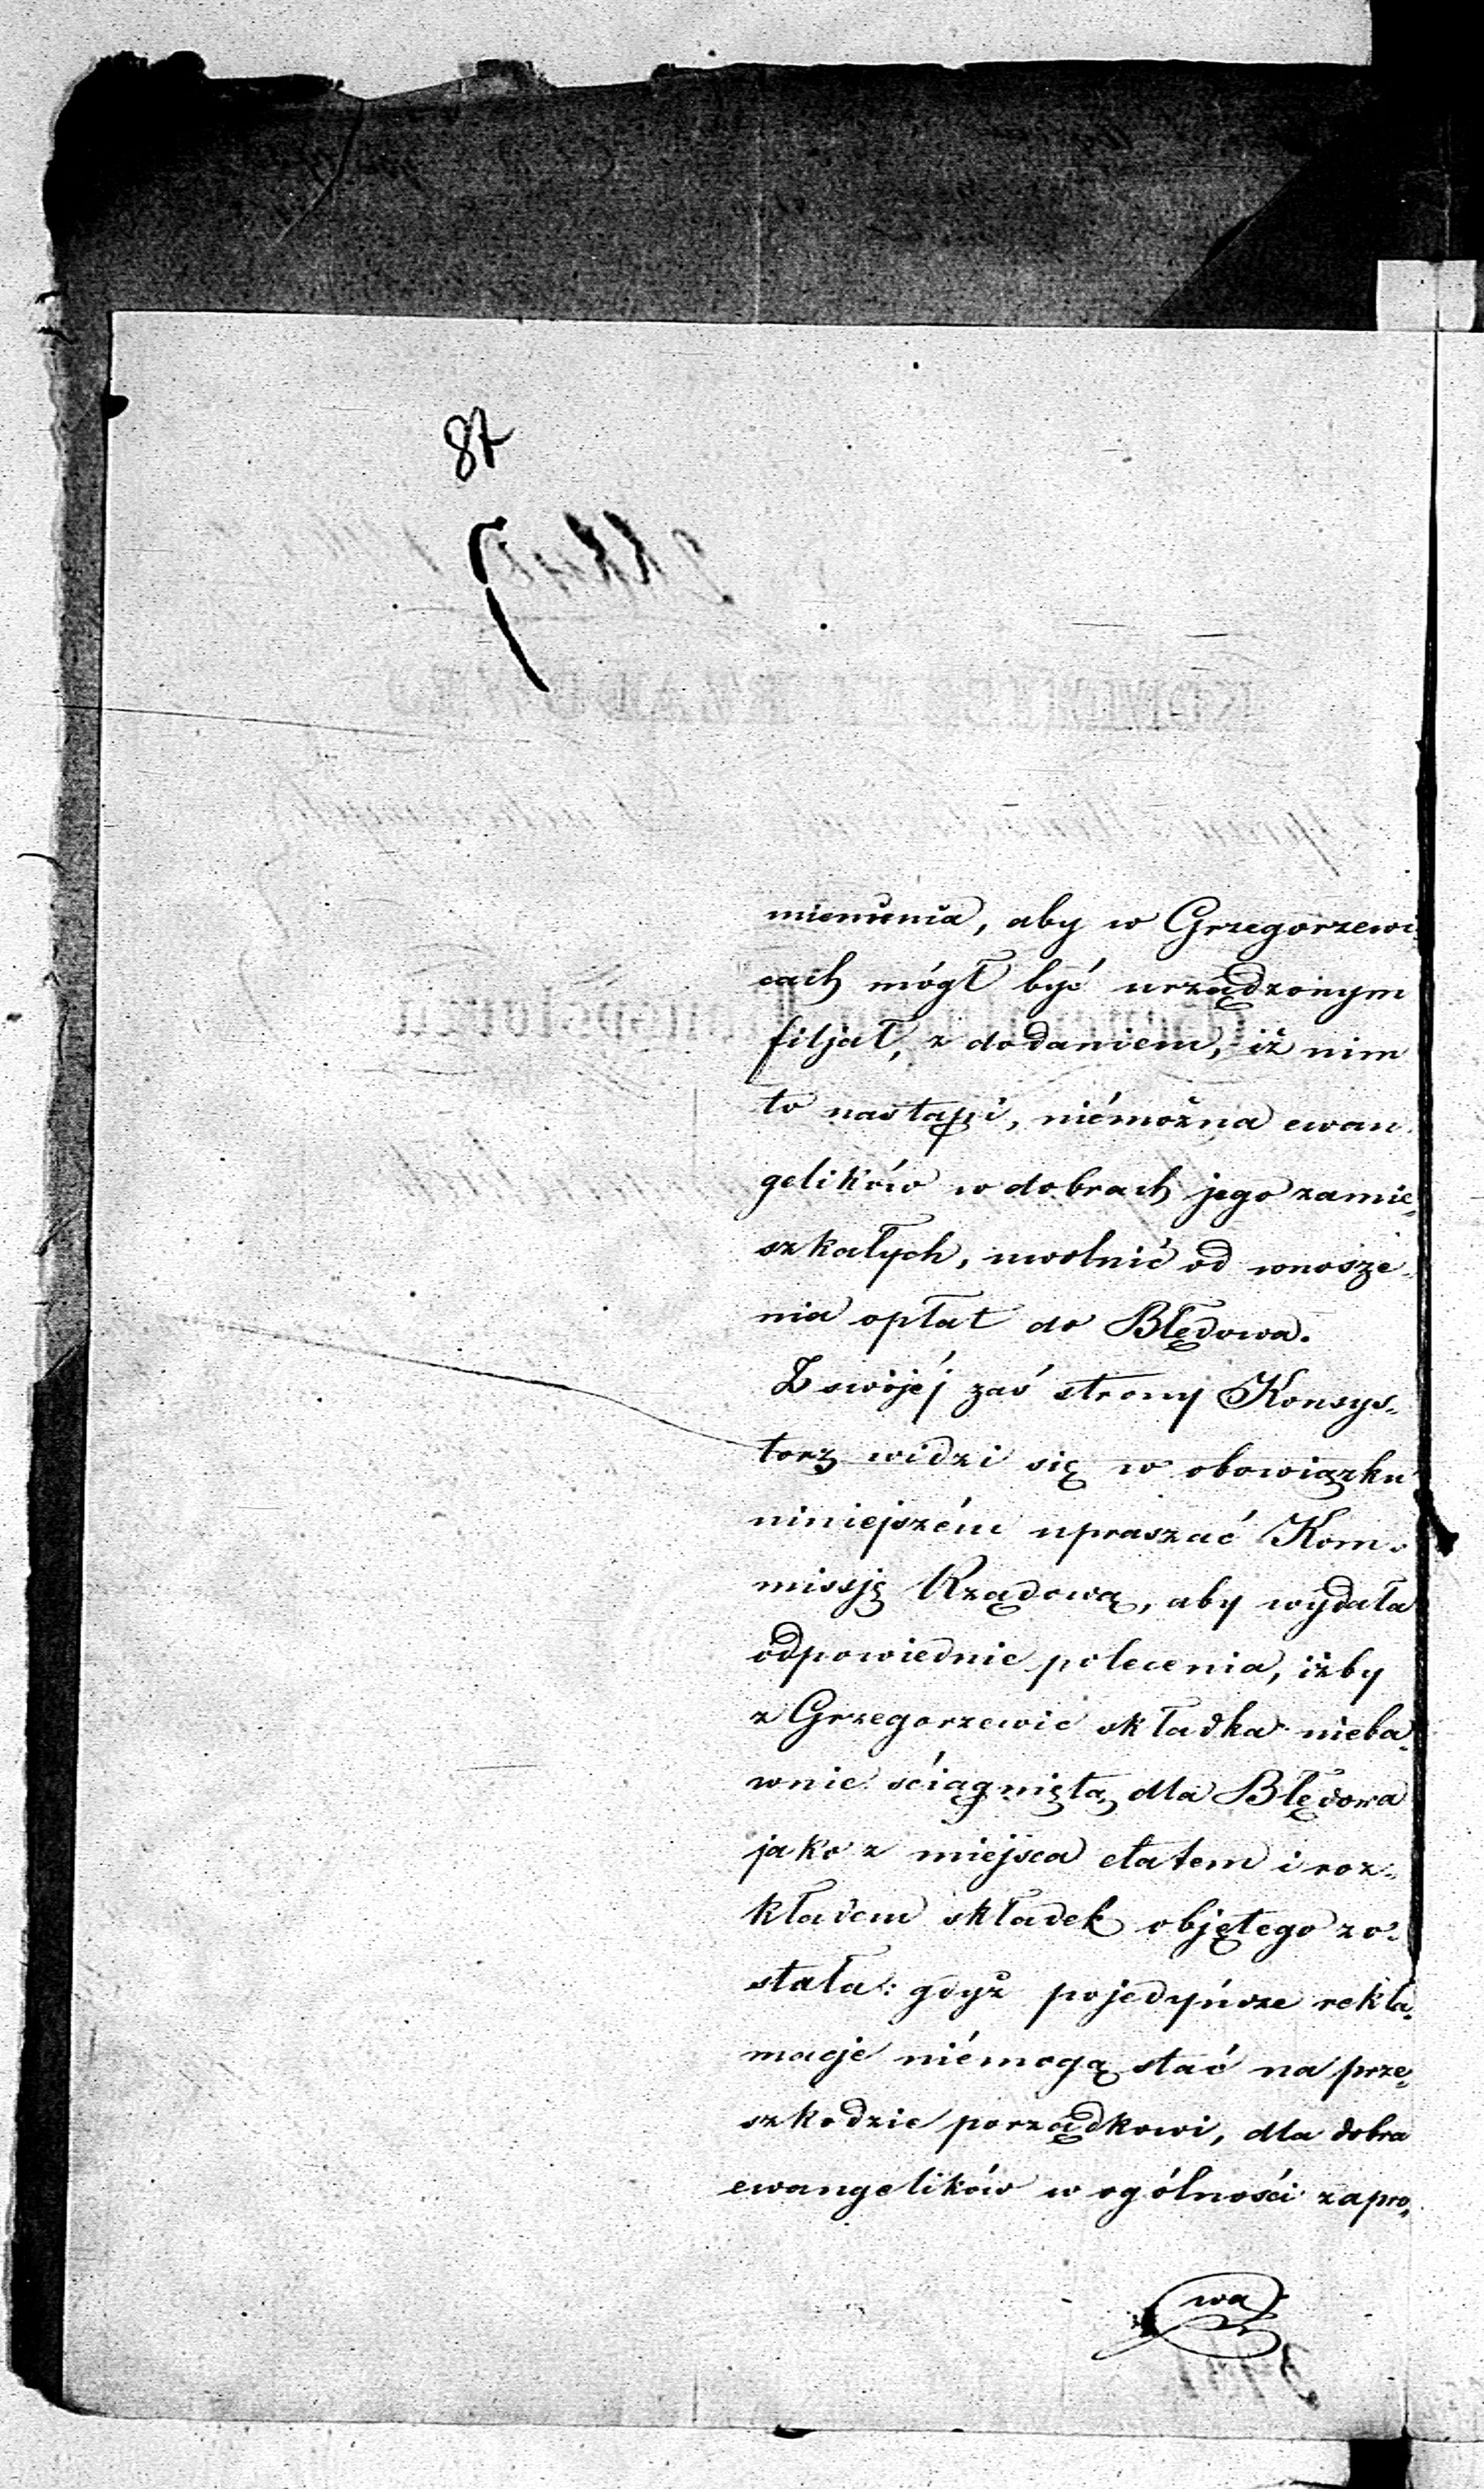 87
mienienia, aby w Grzegorzewi-
cach mógł być urządzonym
filjał, z dodaniem, iż nim
to nastąpi, niémożna ewan-
gelików w dobrach jego zamie-
szkałych, uwolnić od wnosze-
nia opłat do Błędowa.
Z swojéj zaś strony Konsys-
torz widzi się w obowiązku
niniejszém upraszać Kom-
missję Rządową, aby wydała
odpowiednie polecenia, iżby
z Grzegorzewic składka nieba-
wnie ściągniętą dla Błędowa
jako z miejsca etatem i roz-
kładem składek objętego zo-
stała: gdyż pojedyńcze rekla-
macje niémogą stać na prze-
szkodzie porządkowi, dla dobra
ewangelików w ogólności zapro-
wa